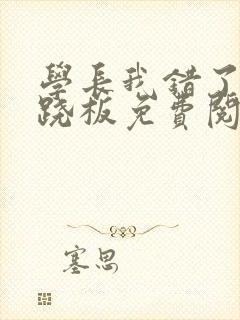 學長我錯了
跷板免費閱
塞思